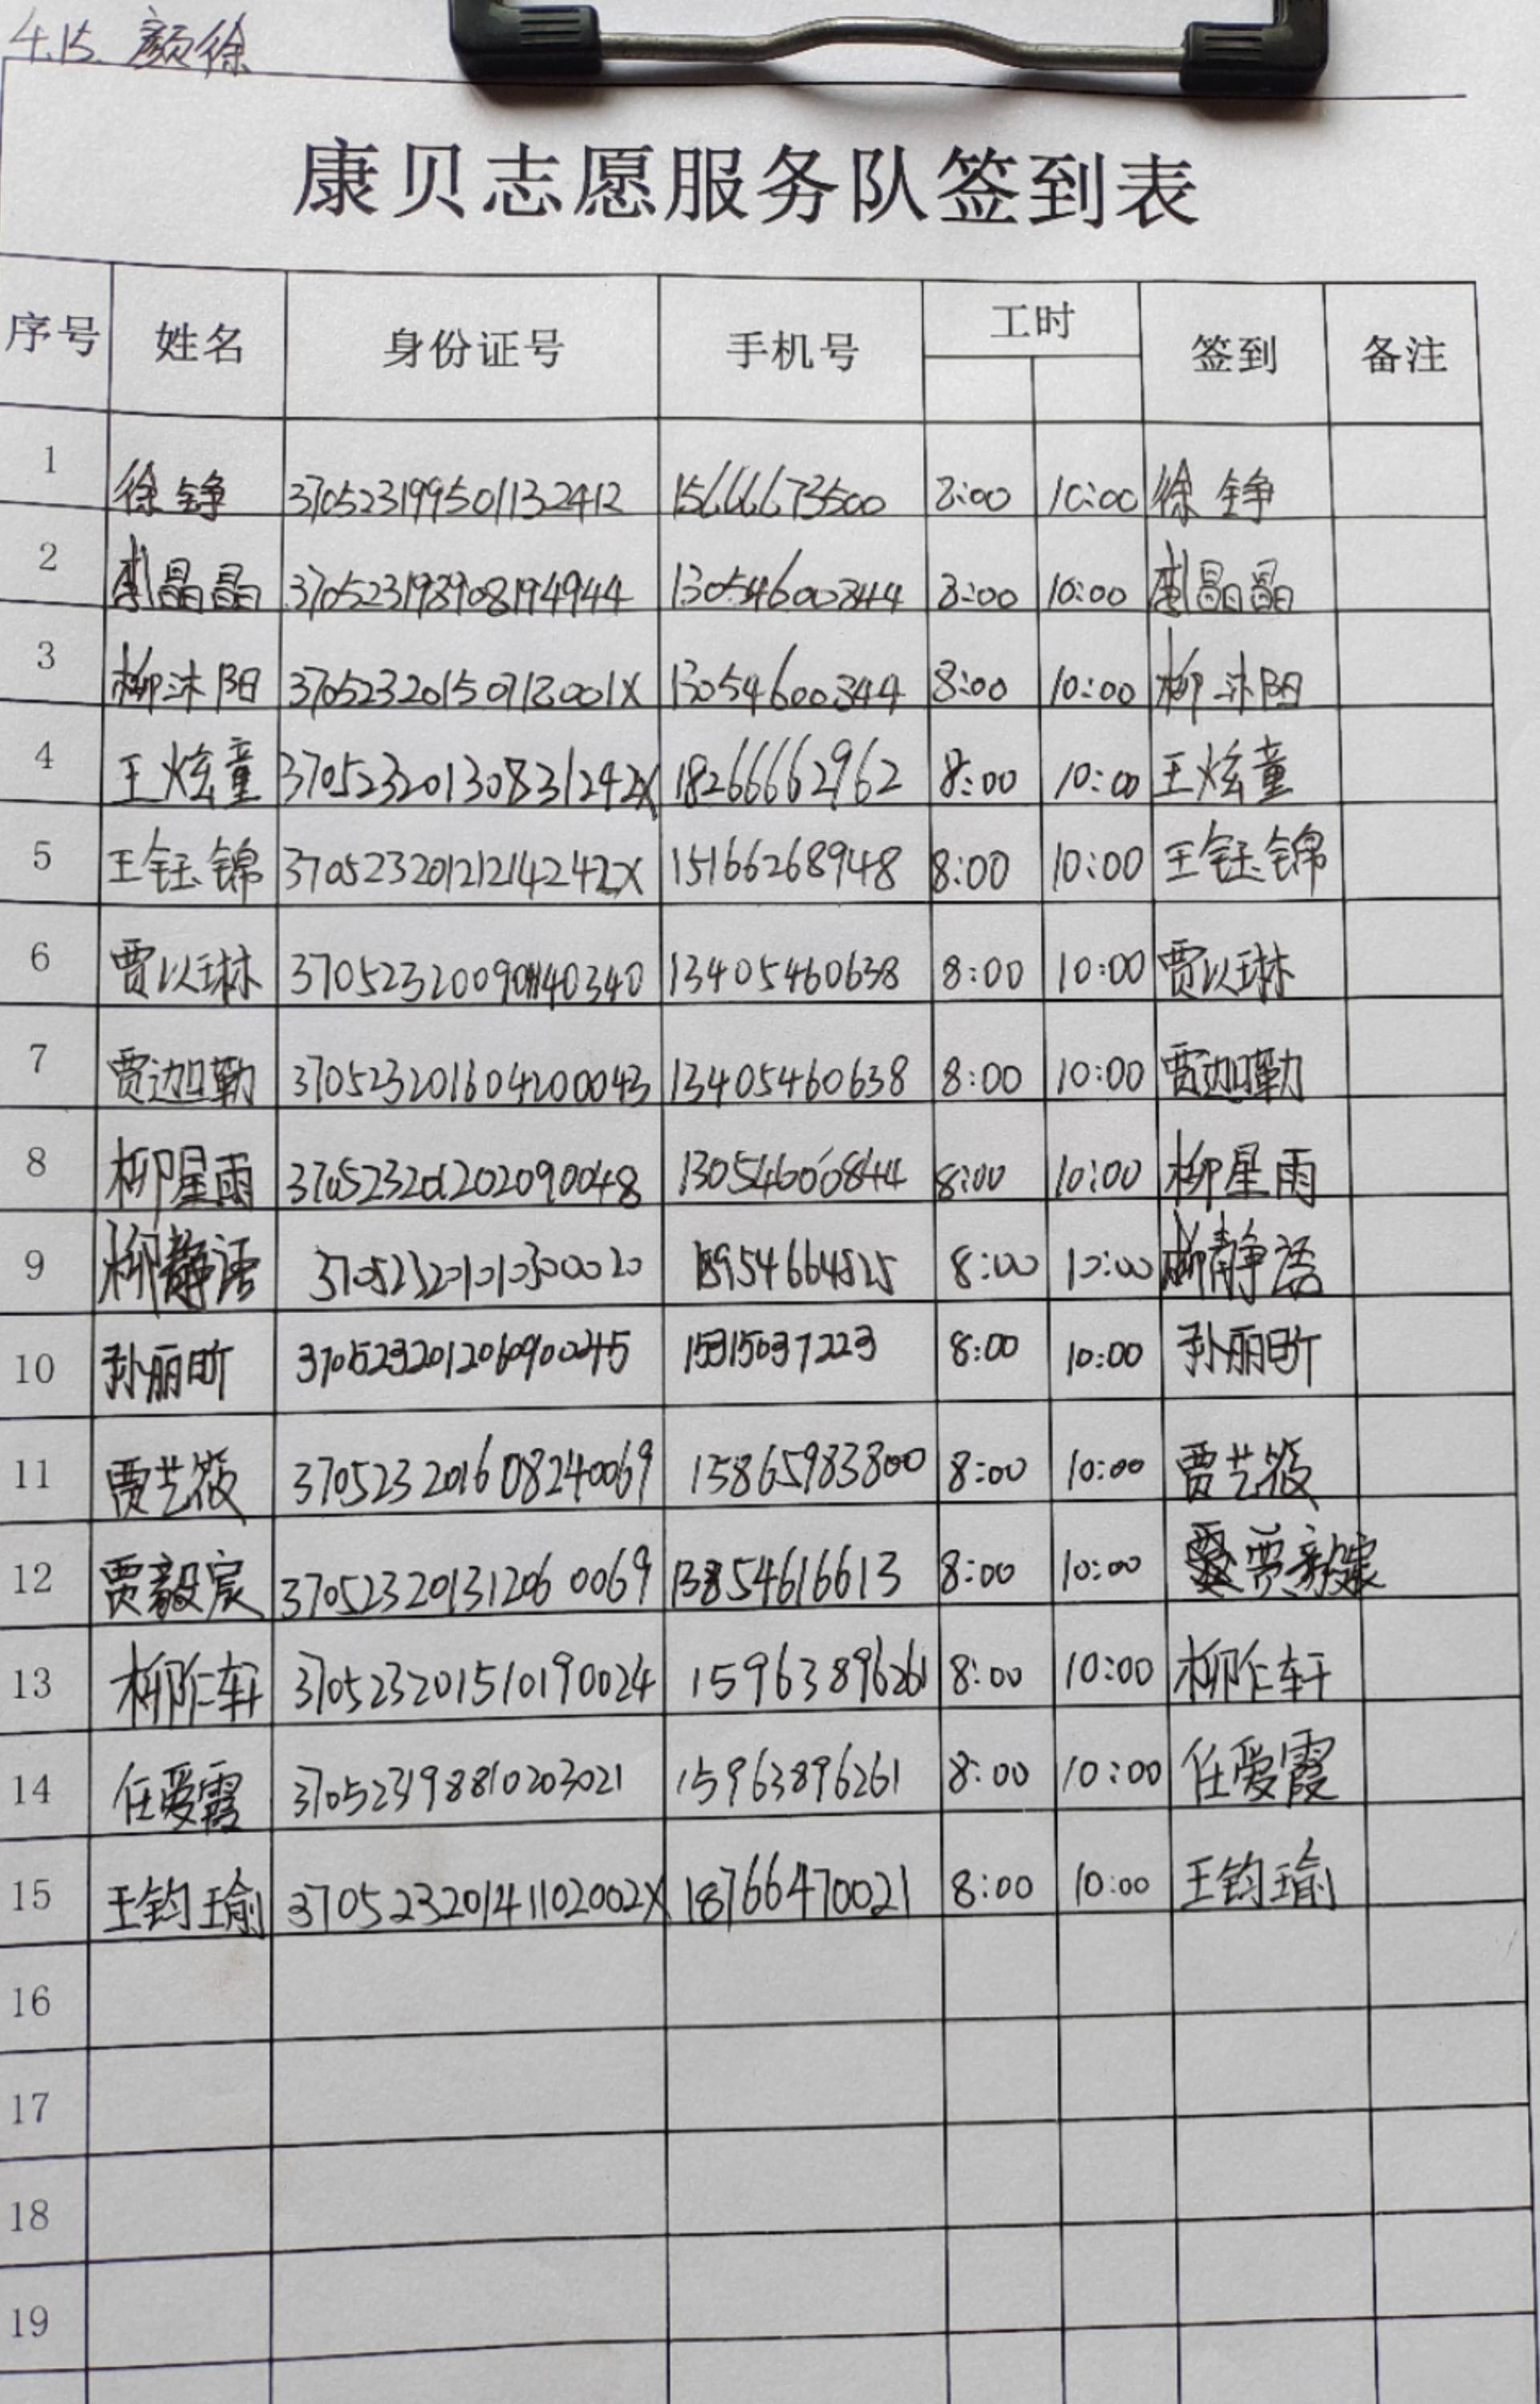 4.15. 颜徐
康贝志愿服务队签到表
序号 姓名 身份证号 手机号 工时 签到 备注
1 徐铮 370523199501132412 15666673500 8:00 10:00 徐铮
2 李晶晶 370523198908194944 13054600844 8:00 10:00 李晶晶
3 柳沐阳 37052320150718001X 13054600844 8:00 10:00 柳沐阳
4 王炫童 37052320130831242X 18266662962 8:00 10:00 王炫童
5 王钰锦 37052320121214242X 15166268948 8:00 10:00 王钰锦
6 贾以琳 13405460638 8:00 10:00 贾以琳
7 贾迦勒 370523201604200043 13405460638 8:00 10:00 贾迦勒
8 柳星雨 370523201202090048 13054600844 8:00 10:00 柳星雨
9 柳静语 370523201010300020 18954664825 8:00 10:00 柳静语
10 孙丽昕 370523201206090045 15315037223 8:00 10:00 孙丽昕
11 贾艺筱 370523201608240069 15865983800 8:00 10:00 贾艺筱
12 贾毅宸 370523201312060069 13854616613 8:00 10:00 贾毅宸
13 柳仁轩 370523201510190024 15963896261 8:00 10:00 柳仁轩
14 任爱霞 370523198810203021 15963896261 8:00 10:00 任爱霞
15 王钧瑜 37052320141102002X 18766470021 8:00 10:00 王钧瑜
16
17
18
19